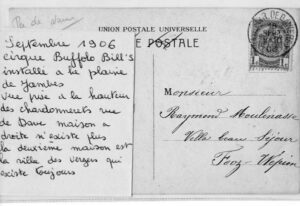 Rue de Dave
UNION POSTALE UNIVERSELLE
E POSTALE
Septembre 1906
cirque Buffolo Bill's
installé a la plaine
de Jambes
vue prise à la hauteur
des chardonnerets rue
de Dave maison a
droite n'existe plus
la deuxième maison est
la villa des verges qui
existe toujours
Monsieur
Raymond Moulinasse
Villa beau Séjour
Fooz-Wépion